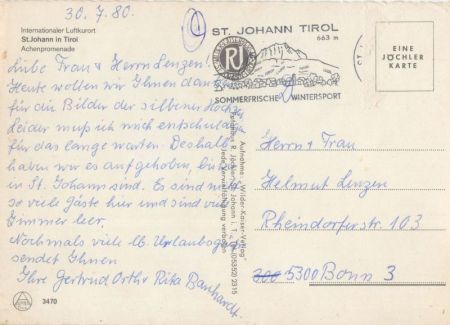 30.7.80.
Internationaler Luftkurort
St.Johann in Tirol
Achenpromenade
Liebe Frau & Herrn Lenzen!
Heute wollen wir Ihnen danken
für die Bilder der silbernen Hochzeit
Leider muß ich mich entschuldigen
für das lange warten. Deshalb
haben wir es aufgehoben, bis wir
in St. Johann sind. Es sind nicht
so viele Gäste hier und sind viele
Zimmer leer.
Nochmals viele lb. Urlaubsgrüße
sendet Ihnen
Ihre Gertrud Orth & Rita Banhardt
3470
ST. JOHANN TIROL
663 m
RJ
SOMMERFRISCHE
WINTERSPORT
EINE
JÖCHLER
KARTE
Aufnahme: „Wilder-Kaiser-Verlag"
R. Jöchler, St. Johann i. T., (05352) 2315
Jede Vervielfältigung verboten
Herrn & Frau
Helmut Lenzen
Rheindorferstr. 103
5300 Bonn 3